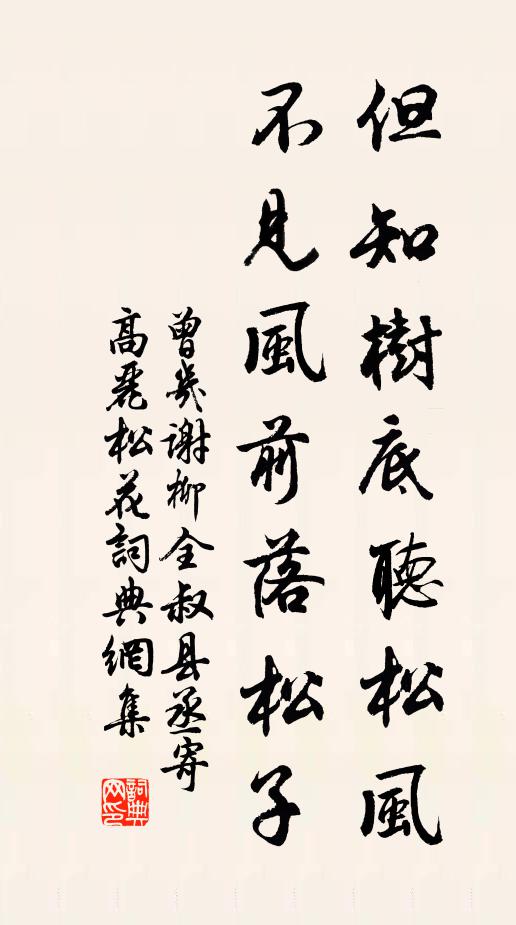 但知樹底聽松風
不見風前落松子
曾幾謝柳全叔县丞寄
高麗松花詞典網集
詞典
网印